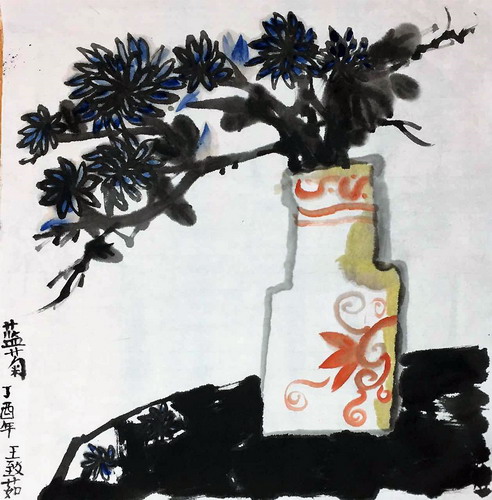 蓝菊
丁酉年
王致茹